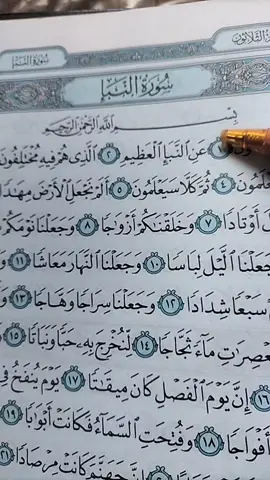 سُورَةُ النَّبَإِ
الثَّلَاثُونَ
سُورَةُ النَّبَإِ
بِسْمِ اللَّهِ الرَّحْمَٰنِ الرَّحِيمِ
ونَ ١ عَنِ النَّبَإِ الْعَظِيمِ ٢ الَّذِي هُمْ فِيهِ مُخْتَلِفُونَ
لَمُونَ ٤ ثُمَّ كَلَّا سَيَعْلَمُونَ ٥ أَلَمْ نَجْعَلِ الْأَرْضَ مِهَٰدًا
أَوْتَادًا ٧ وَخَلَقْنَٰكُمْ أَزْوَٰجًا ٨ وَجَعَلْنَا نَوْمَكُمْ
عَلْنَا الَّيْلَ لِبَاسًا ١٠ وَجَعَلْنَا النَّهَارَ مَعَاشًا ١١
مْ سَبْعًا شِدَادًا ١٢ وَجَعَلْنَا سِرَاجًا وَهَّاجًا ١٣
عْصِرَٰتِ مَآءً ثَجَّاجًا ١٤ لِّنُخْرِجَ بِهِۦ حَبًّا وَنَبَاتًا ١٥
١٦ إِنَّ يَوْمَ الْفَصْلِ كَانَ مِيقَٰتًا ١٧ يَوْمَ يُنفَخُ فِي
أَفْوَاجًا ١٨ وَفُتِحَتِ السَّمَآءُ فَكَانَتْ أَبْوَٰبًا ١٩
جَهَنَّمَ كَانَتْ مِرْصَادًا ٢١